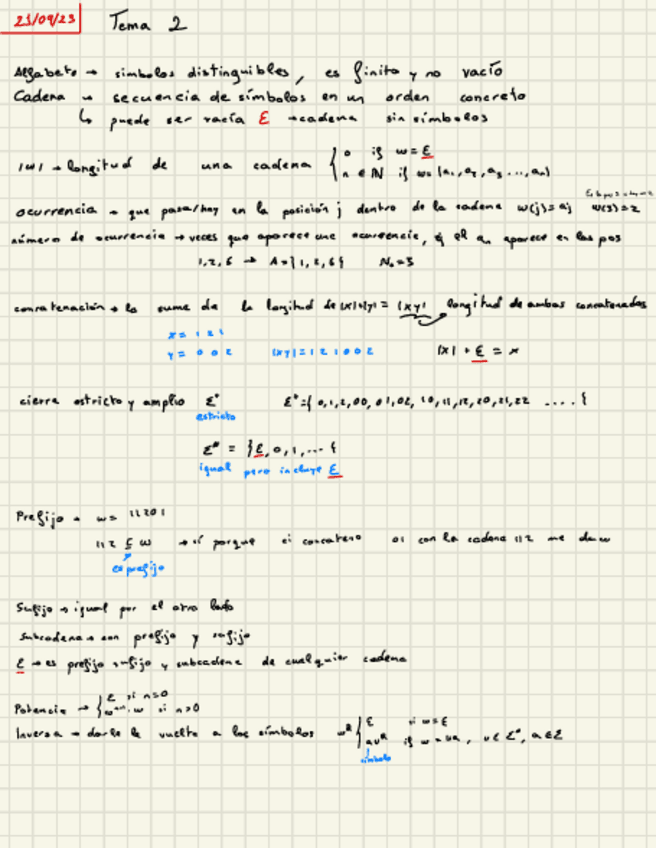 21/09/23 Tema 2
Alfabeto → simbolos distinguibles, es finito y no vacío
Cadena → secuencia de símbolos en un orden concreto
↳ puede ser vacía ε → cadena sin símbolos
|w| → longitud de una cadena { 0 if w=ε
n ∈ N if w=(a₁, a₂, a₃ ..., aₙ)
ocurrencia → que pasa/hay en la posición j dentro de la cadena w(j)=aj w(3)=2
número de ocurrencia → veces que aparece una ocurrencia, el an aparece en las pos
1,2,6 → A={1,2,6} Nₐ=3
concatenación → la suma de la longitud de |x|+|y| = |xy| longitud de ambas concatenadas
x = 1 2 1
y = 0 0 2 |xy| = 1 2 1 0 0 2 |x| + ε = x
cierre estricto y amplio Σ⁺ Σ⁺={ 0,1,2,00,01,02,10,11,12,20,21,22 ....}
estricto
Σ* = {ε,0,1,...}
igual pero incluye ε
Prefijo → w= 11201
112 ⊑ w → sí porque si concateno 01 con la cadena 112 me da w
es prefijo
Sufijo → igual por el otro lado
Subcadena → son prefijo y sufijo
ε → es prefijo sufijo y subcadena de cualquier cadena
Potencia → { ε si n=0
wⁿ⁻¹·w si n>0
Inversa → darle la vuelta a los símbolos wᴿ { ε si w=ε
auᴿ if w=ua, u∈Σ*, a∈Σ
símbolo